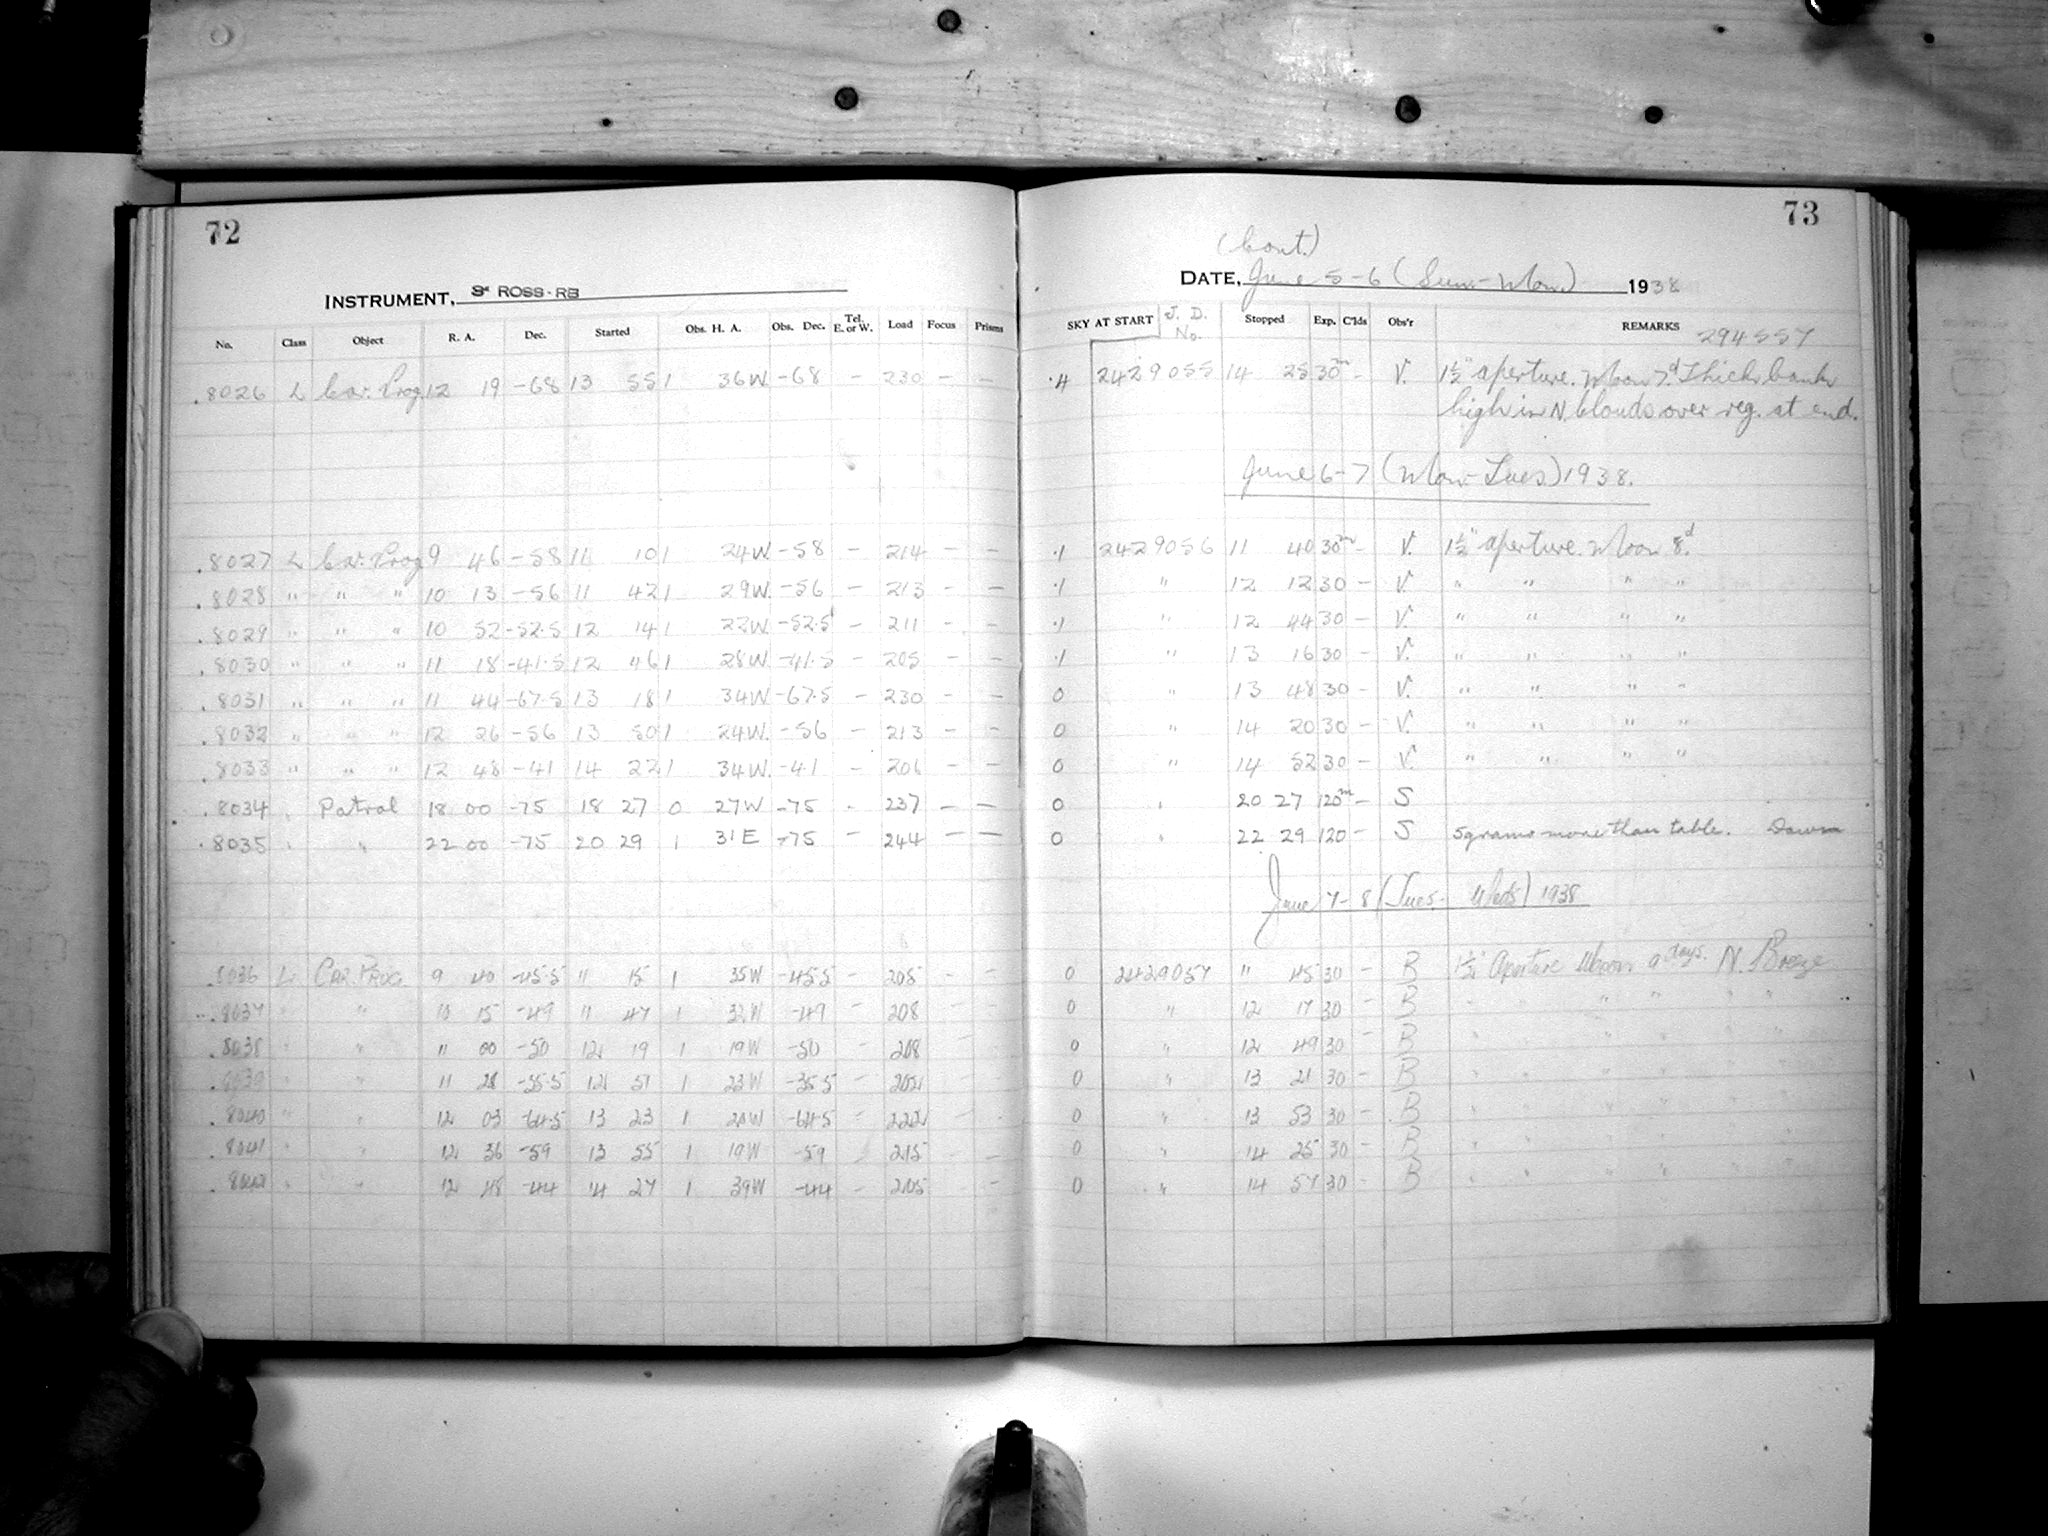 72
INSTRUMENT, 3" ROSS-RB
No. Class Object R. A. Dec. Started Obs. H. A. Obs. Dec. Tel. E. or W. Load Focus Prisms
.8026 L Car. Prog 12 19 -68 13 55 1 36W -68 - 230 - -
.8027 L Car. Prog 9 46 -58 11 10 1 24W -58 - 214 - -
.8028 " " " 10 13 -56 11 42 1 29W -56 - 213 - -
.8029 " " " 10 52 -52.5 12 14 1 22W -52.5 - 211 - -
.8030 " " " 11 18 -41.5 12 46 1 28W -41.5 - 205 - -
.8031 " " " 11 44 -67.5 13 18 1 34W -67.5 - 230 - -
.8032 " " " 12 26 -56 13 50 1 24W. -56 - 213 - -
.8033 " " " 12 48 -41 14 22 1 34W. -41 - 206 - -
.8034 Patrol 18 00 -75 18 27 0 27W -75 - 237 - -
.8035 " " 22 00 -75 20 29 1 31E -75 - 244 - -
.8036 L CAR. PROG. 9 40 -45.5 11 15 1 35W -45.5 - 205 - -
.8037 " " 10 15 -49 11 47 1 32W -49 - 208 - -
.8038 " " 11 00 -50 12 19 1 19W -50 - 208 - -
.8039 " " 11 28 -35.5 12 51 1 23W -35.5 - 202 - -
.8040 " " 12 03 -64.5 13 23 1 20W -64.5 - 222 - -
.8041 " " 12 36 -59 13 55 1 19W -59 - 215 - -
.8042 " " 12 48 -44 14 27 1 39W -44 - 205 - -
73
(Cont.)
DATE, June 5-6 (Sun-Mon) 1938
SKY AT START J. D. No. Stopped Exp. C'lds Obs'r REMARKS 294557
.4 2429055 14 25 30m - V. 1½" aperture. Moon 7.d Thick bank
high in N. Clouds over reg. at end.
June 6-7 (Mon-Tues) 1938.
.1 2429056 11 40 30m - V. 1½" aperture. Moon 8.d
.1 " 12 12 30 - V. " " " "
.1 " 12 44 30 - V. " " " "
.1 " 13 16 30 - V. " " " "
0 " 13 48 30 - V. " " " "
0 " 14 20 30 - V. " " " "
0 " 14 52 30 - V. " " " "
0 " 20 27 120m - S
0 " 22 29 120 - S 5 grams more than table. Dawn
June 7-8 (Tues- Wed) 1938
0 2429057 11 45 30 - B 1½" Aperture Moon 9 days. N. Breeze
0 " 12 17 30 B " " " " " "
0 " 12 49 30 - B " " " " " "
0 " 13 21 30 - B " " " " " "
0 " 13 53 30 - B " " " " " "
0 " 14 25 30 - B " " " " " "
0 " 14 57 30 - B " " " " " "